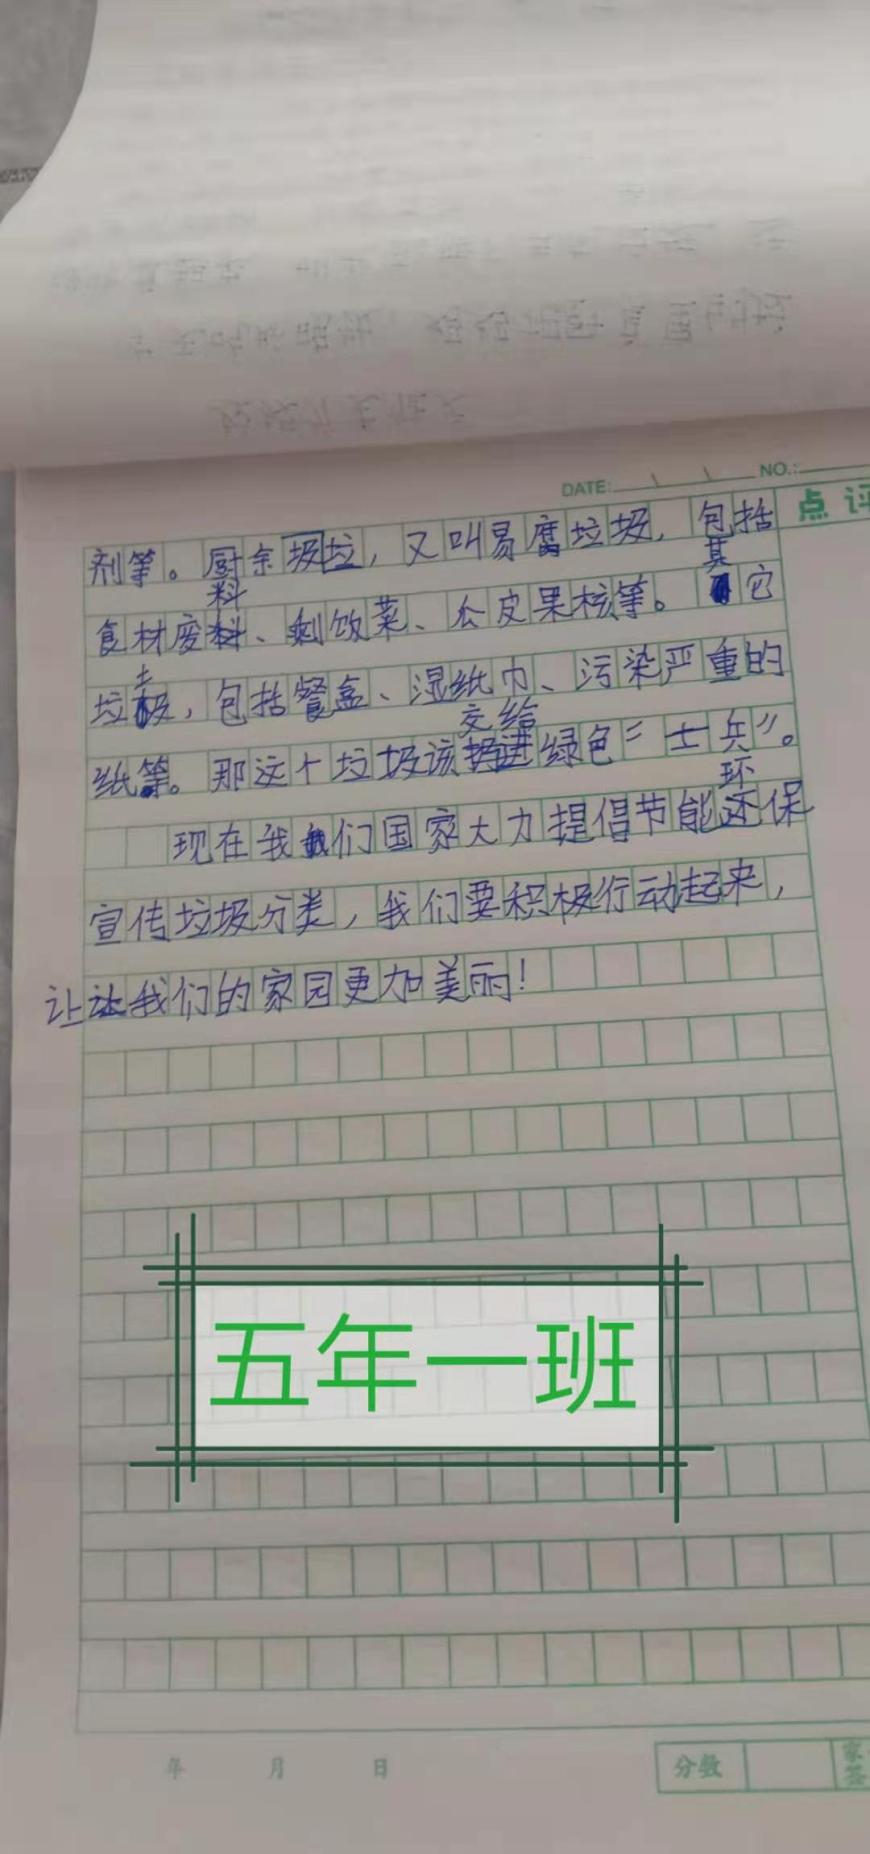 DATE: NO.:
点评
剂等。厨余圾垃，又叫易腐垃圾，包括
食材废料、剩饭菜、瓜皮果核等。其它
垃圾，包括餐盒、湿纸巾、污染严重的
纸等。那这个垃圾该交给绿色“士兵”。
现在我们国家大力提倡节能环保
宣传垃圾分类，我们要积极行动起来，
让我们的家园更加美丽！
五年一班
年 月 日
分数